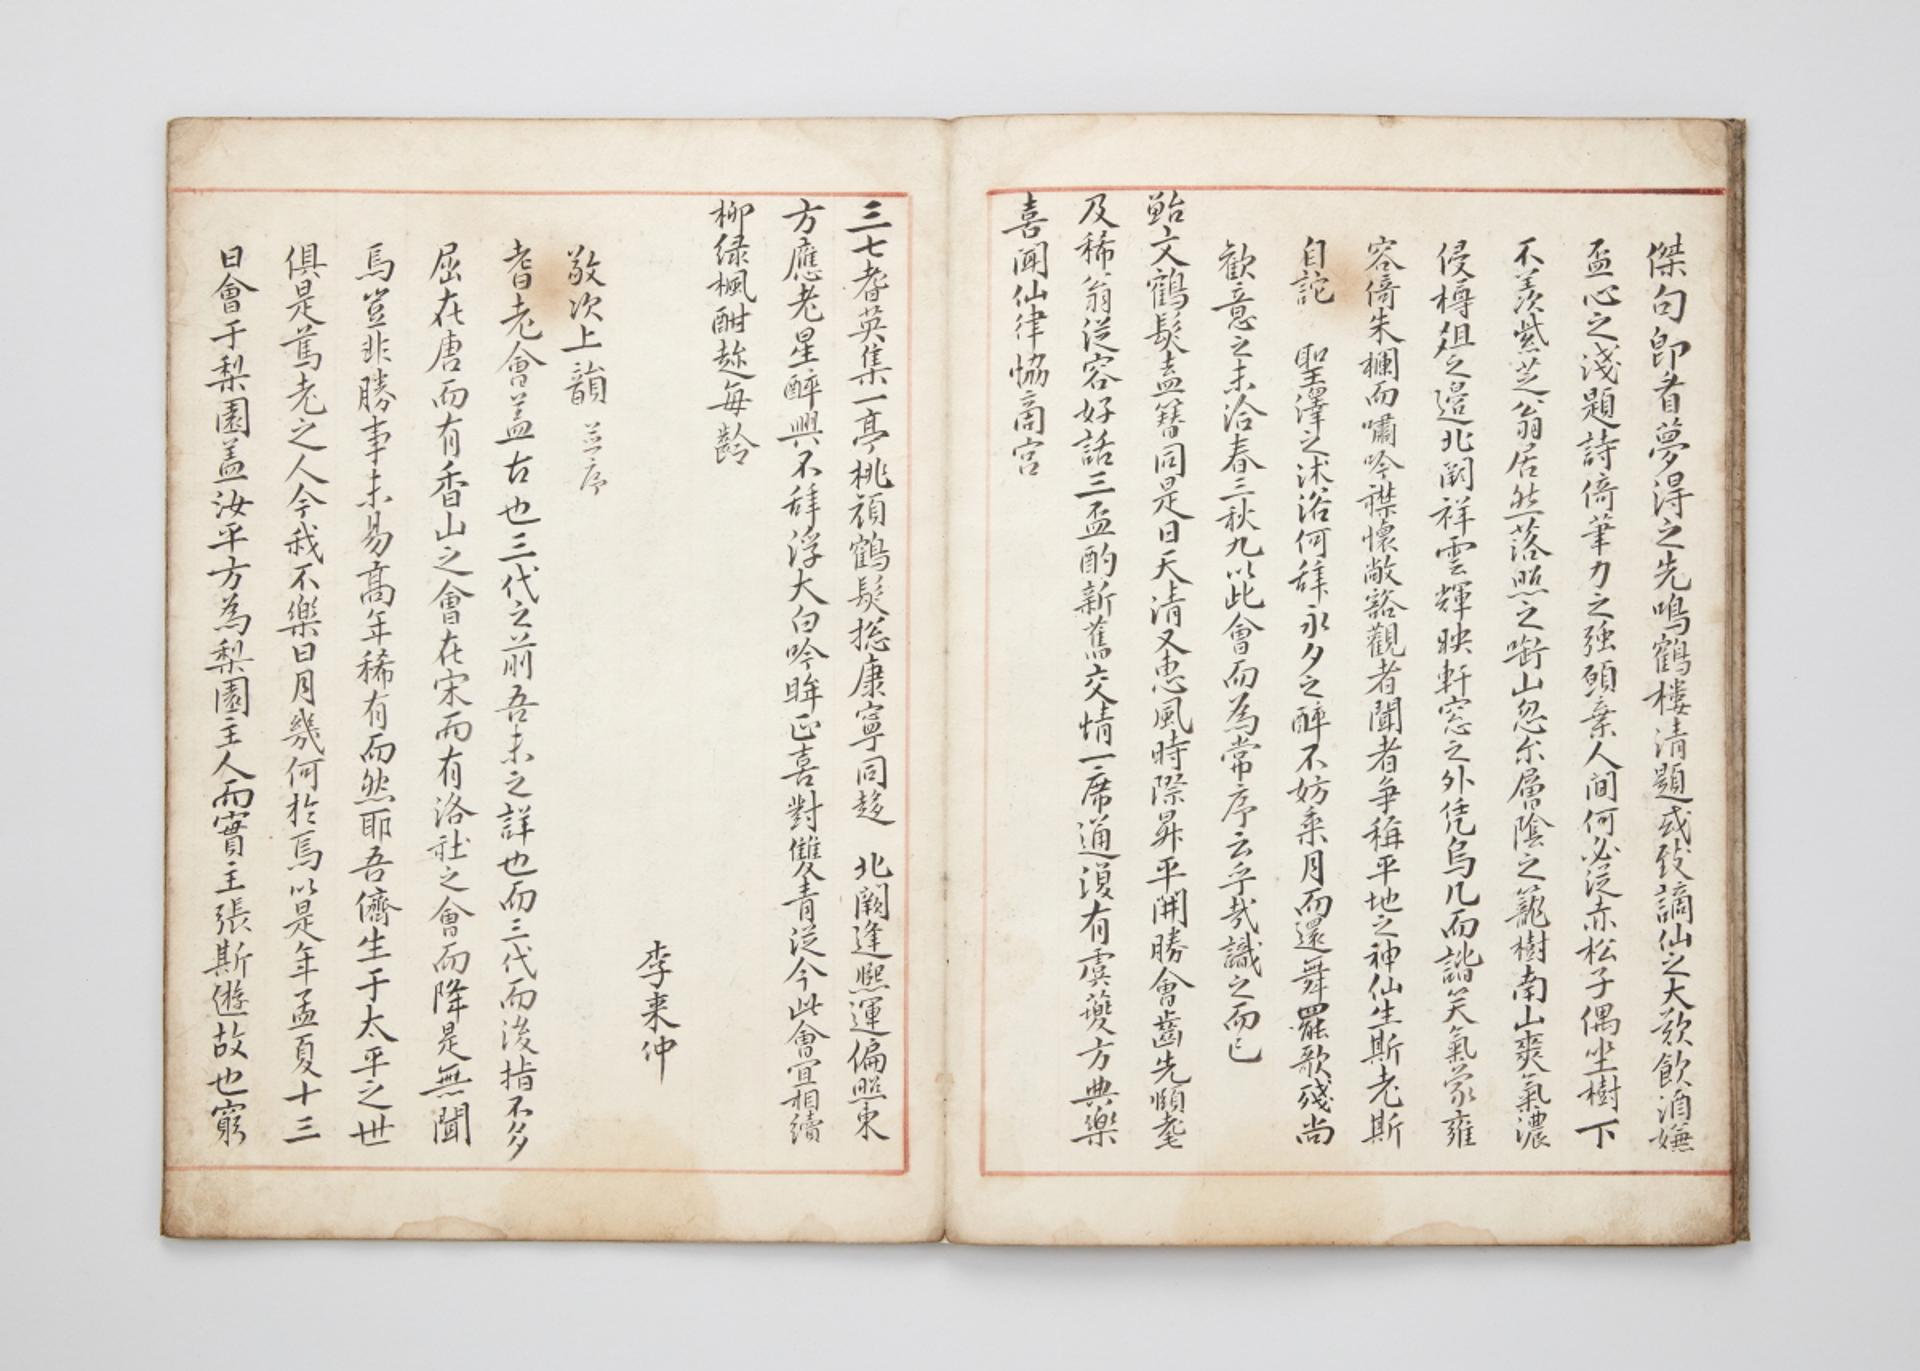 傑句卽看夢得之先鳴鶴樓清題或致謫仙之大欿飮酒嫌
盃心之淺題詩倚筆力之强頤棄人間何必従赤松子偶坐樹下
不羨紫芝翁居然落照之啣山忽尒層陰之籠樹南山爽氣濃
侵樽俎之邉北闕祥雲輝映軒窓之外凭烏几而諧笑氣像雍
容倚朱欄而嘯吟襟懷敞豁觀者聞者争稱平地之神仙生斯老斯
自詫 聖澤之沐浴何辞永夕之醉不妨乘月而還舞罷歌殘尚
歡意之未洽春三秋九以此會而爲常序云乎哉識之而已
鮐文鶴髮盍簪同是日天清又惠風時際昇平開勝會齒先頤耄
及稀翁従容好話三盃酌新舊交情一席通復有虞夔方典樂
喜聞仙律恊商宮
三七耆英集一亭桃顔鶴髮摠康寧同趍 北闕逢熙運偏照東
方應老星醉興不辞浮大白吟眸正喜對雙青従今此會宜相續
柳緑楓酣趂每齡
李来仲
敬次上韻 並序
耆老會盖古也三代之前吾未之詳也而三代而後指不多
屈在唐而有香山之會在宋而有洛社之會而降是無聞
焉豈非勝事未易高年稀有而然耶吾儕生于太平之世
俱是舊老之人今我不樂日月幾何於焉以是年孟夏十三
日會于梨園盖汝平方為梨園主人而實主張斯遊故也窮